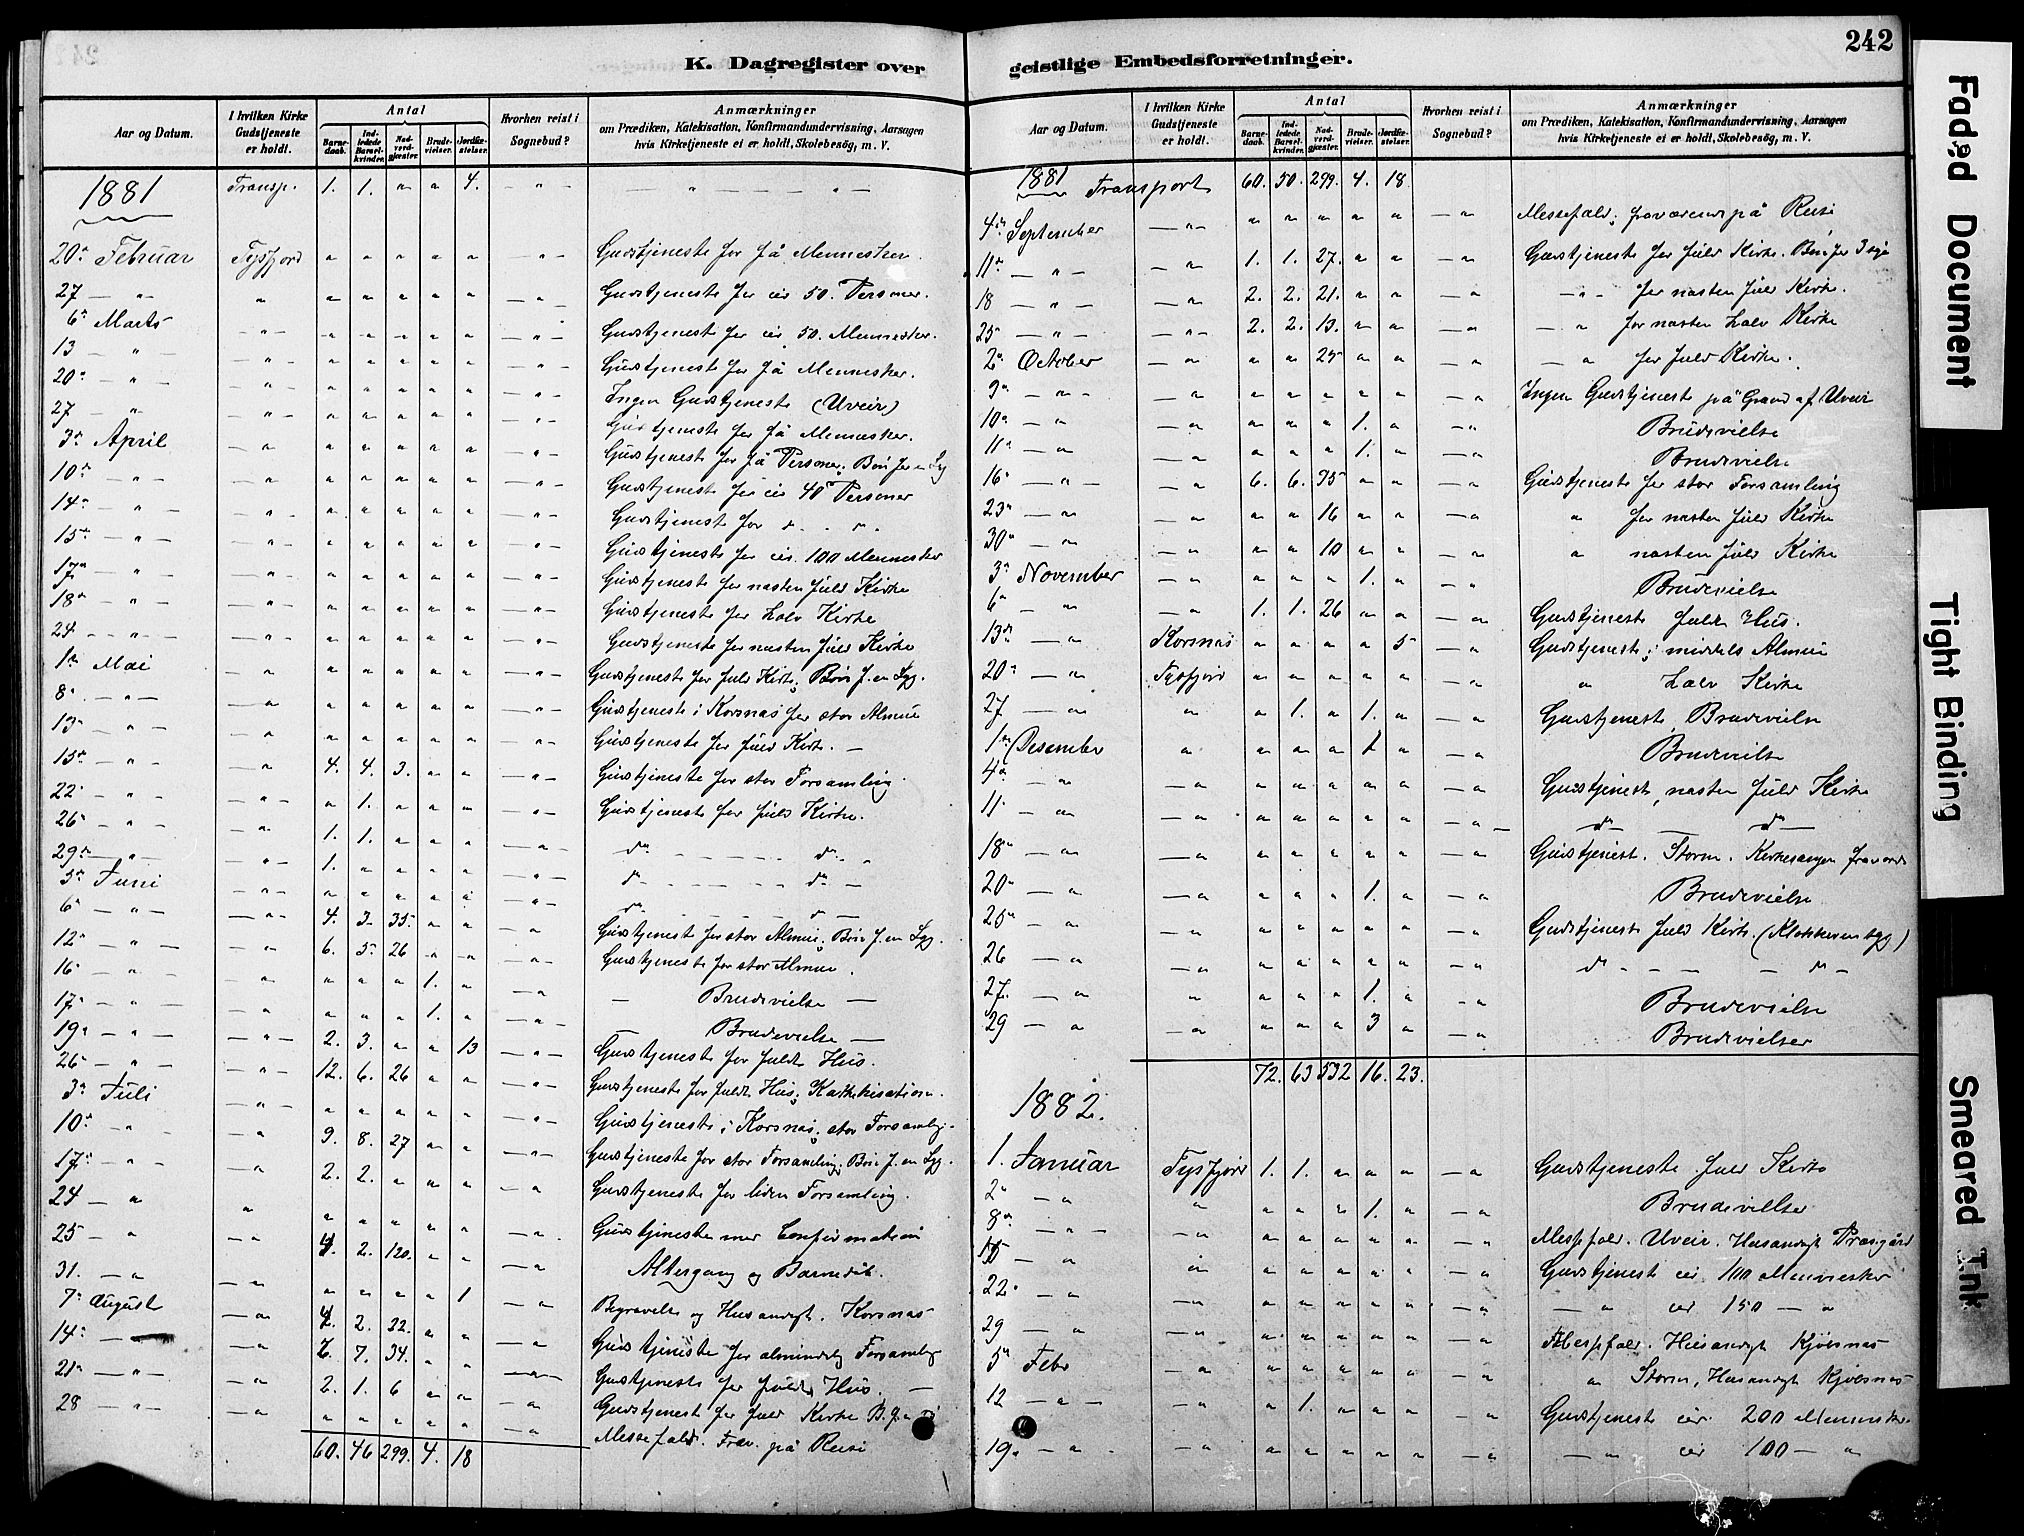 242
K. Dagregister over
Aar og Datum. I hvilken Kirke Gudstjeneste er holdt. Antal Barnedaab. Indledede Barselkvinder. Nadverdgjæster. Brudevielser. Jordfæstelser. Hvorhen reist i Sognebud? Anmærkninger om Prædiken, Katekisation, Konfirmandundervisning, Aarsagen hvis Kirketjeneste ei er holdt, Skolebesøg, m. V.
1881 Transp. 1. 1. " " 4. — " — — " — — — " —
20de Februar Tysfjord " " " " " — " — Gudstjeneste for få Mennesker.
27 — " — " " " " " " — " — Gudstjeneste for cir 50. Personer.
6te Marts — " — " " " " " — " — Gudstjeneste for cir. 50. Mennesker.
13 — " — — " — " " " " " — " — Gudstjeneste for få Mennesker.
20de — " — — " — " " " " " — " — Ingen Gudstjeneste (Uveir)
27 — " — — " — " " " " " — " — Gudstjeneste for få Mennesker.
3de April — " " " " " " — " — Gudstjeneste for få Personer. Bøn for en Syg
10de — " — — " " " " " " — " — Gudstjeneste for cir 40 Personer
14de — " — — " — " " " " " — " — Gudstjeneste for d. " - "
15de — " — — " — " " " " " — " — Gudstjeneste for cir. 100 Mennesker
17de — " — — " — " " " " " — " — Gudstjeneste for næsten fuld Kirke
18de — " — — " — " " " " " — " — Gudstjeneste for halv Kirke
24 — " — — " — " " " " " — " — Gudstjeneste for næsten fuld Kirke
1ste Mai — " " " " " " — " — Gudstjeneste for fuld Kirke, Bøn f. en Syg.
8de — " — — " " " " " " — " — Gudstjeneste i Korsnæs for stor Almue
13de — " — — " " " " " " — " — Gudstjeneste for fuld Kirke. —
15de — " — — " 4. 4. 3. " " — " — Gudstjeneste for stor Forsamling
22de — " — — " — " 1. " " " — " — Gudstjeneste for fuld Kirke.
26de — " — — " 1. 1. " " " — " — do - - - - do - "
29de — " — — " — 1. " " " " — " — do - - - - do —
5te Juni — " — " " " " " — " — do - - - - do —
6te — " — — " — 4. 3. 35. " " — " Gudstjeneste for stor Almue, Bøn f. en Syg.
12te — " — — " 6. 5. 26 " " — " — Gudstjeneste for stor Almue.
16de — " — — " " " " 1. " — " — Brudevielse —
17de — " — — " " " " 1. " — " — — Brudevielse —
19de — " — — " — 2. 3. " " 13 — " — Gudstjeneste for fuldt Hus.
26de — " — — " — 12. 6. 26 " " — " — Gudstjeneste for fuldt Hus, Katekisation.
3de Juli — " — " " " " " — " — Gudstjeneste i Korsnæs, stor Forsamlg.
10de — " — — " 9. 8. 27 " " — " — Gudstjeneste for stor Forsamling, Bøn f. en Syg.
17de — " — — " 2. 2. " " " — " Gudstjeneste for liden Forsamling.
24 — " " " " " " " — " Gudstjeneste med Confirmation
25 — " — " 4. 2. 120. " " — " Altergang og Barnedåb.
31. — " — " " " " " 1 — " Begravelse og Husandagt. Korsnæs
7de August — " 4. 2. 22. " " — " Gudstjeneste for almindelig Forsamlg
14de — — " 7. 7. 34. " " — " — Gudstjeneste for fuldt Hus. —
21de — " — — " 2. 1. 6 " " — " Gudstjeneste for fuld Kirke B. f.
28 — " — — " " " " " " — " Messefald. Frav. på Reise
60. 46 299. 4. 18
geistlige Embedsforretninger.
Aar og Datum. I hvilken Kirke Gudstjeneste er holdt. Antal Barnedaab. Indledede Barselkvinder. Nadverdgjæster. Brudevielser. Jordfæstelser. Hvorhen reist i Sognebud? Anmærkninger om Prædiken, Katekisation, Konfirmandundervisning, Aarsagen hvis Kirketjeneste ei er holdt, Skolebesøg, m. V.
1881 Transport 60. 50. 299. 4. 18
4de September — " — " " " " " — " Messefald, fraværende på Reise
11te — " — — " 1. 1. 27. " " — " Gudstjeneste for fuld Kirke. Bøn for 3 syge
18 — " — — " 2. 2. 21. " " — " — " — for næsten fuld Kirke.
25 — " — — " — 2. 2. 13. " " — " — " for næsten halv Kirke
2de October — " " " 25 " " — " — " for fuld Kirke.
9de — " — — " " " " " " — " Ingen Gudstjeneste på Grund af Uveir
10de — " — " " " " 1. " — " Brudevielse
11te — " — " " " " 1. " — " Brudevielse
16de — " — — " 6. 6. 95 " " — " Gudstjeneste for stor Forsamling
23de — " — " " " 16 " " — " " for næsten fuld Kirke
30de — " — " " " 10 " " — " " næsten fuld Kirke
3de November — " " " " 1. " — " Brudevielse
6te — " — " 1. 1. 26 " " — " Gudstjeneste fuldt Hus.
13de — " Korsnæs " " " " 5 — " Gudstjeneste, middels Almue
20de — " Tysfjord " " " " " — " " halv Kirke
27 — " " " 1. " 1. " — " Gudstjeneste, Brudevielse
1ste Desember " " " " 1 " — " Brudevielse
4de — " — " " " " " " — " Gudstjeneste, næsten fuld Kirke
11 — " — " " " " " " — " — do — do —
18de — " — " " " " " " — " Gudstjenest. Storm. Kirkesangen fraværde
20de — " — " " " " 1. " — " Brudevielse
25de — " — " " " " " " — " Gudstjeneste fuld Kirke. (Klokkeren syg)
26 — " — " " " " " " — " do - — — do -
27. — " " " " " 1. " — " Brudevielse
29 — " — " " " " 3 " — " Brudevielser
72. 63 532 16. 23.
1882.
1. Januar Tysfjord 1. 1. " " " — " Gudstjeneste fuld Kirke
2de — " " " " " 1. " — " Brudevielse
8de — " — — " " " " " " — " Messefald. Uveir. Husandagt Præsgård
15 — " " " " " " " — " Gudstjeneste cir 100 Mennesker
22de — " — " " " " " " — " — " cir 150 — "
29 — " — " " " " " " — " Messefald. Husandagt Kjøbsnæs
5te Febr — " " " " " " — " " Storm, Husandagt Kjøbsnæs
12 — " — " " 1. " " " — " Gudstjeneste cir. 200 Mennesker.
19de — " — — " " " " " " — " — " cir 100 — "
Faded Document
Tight Binding
Smeared Ink